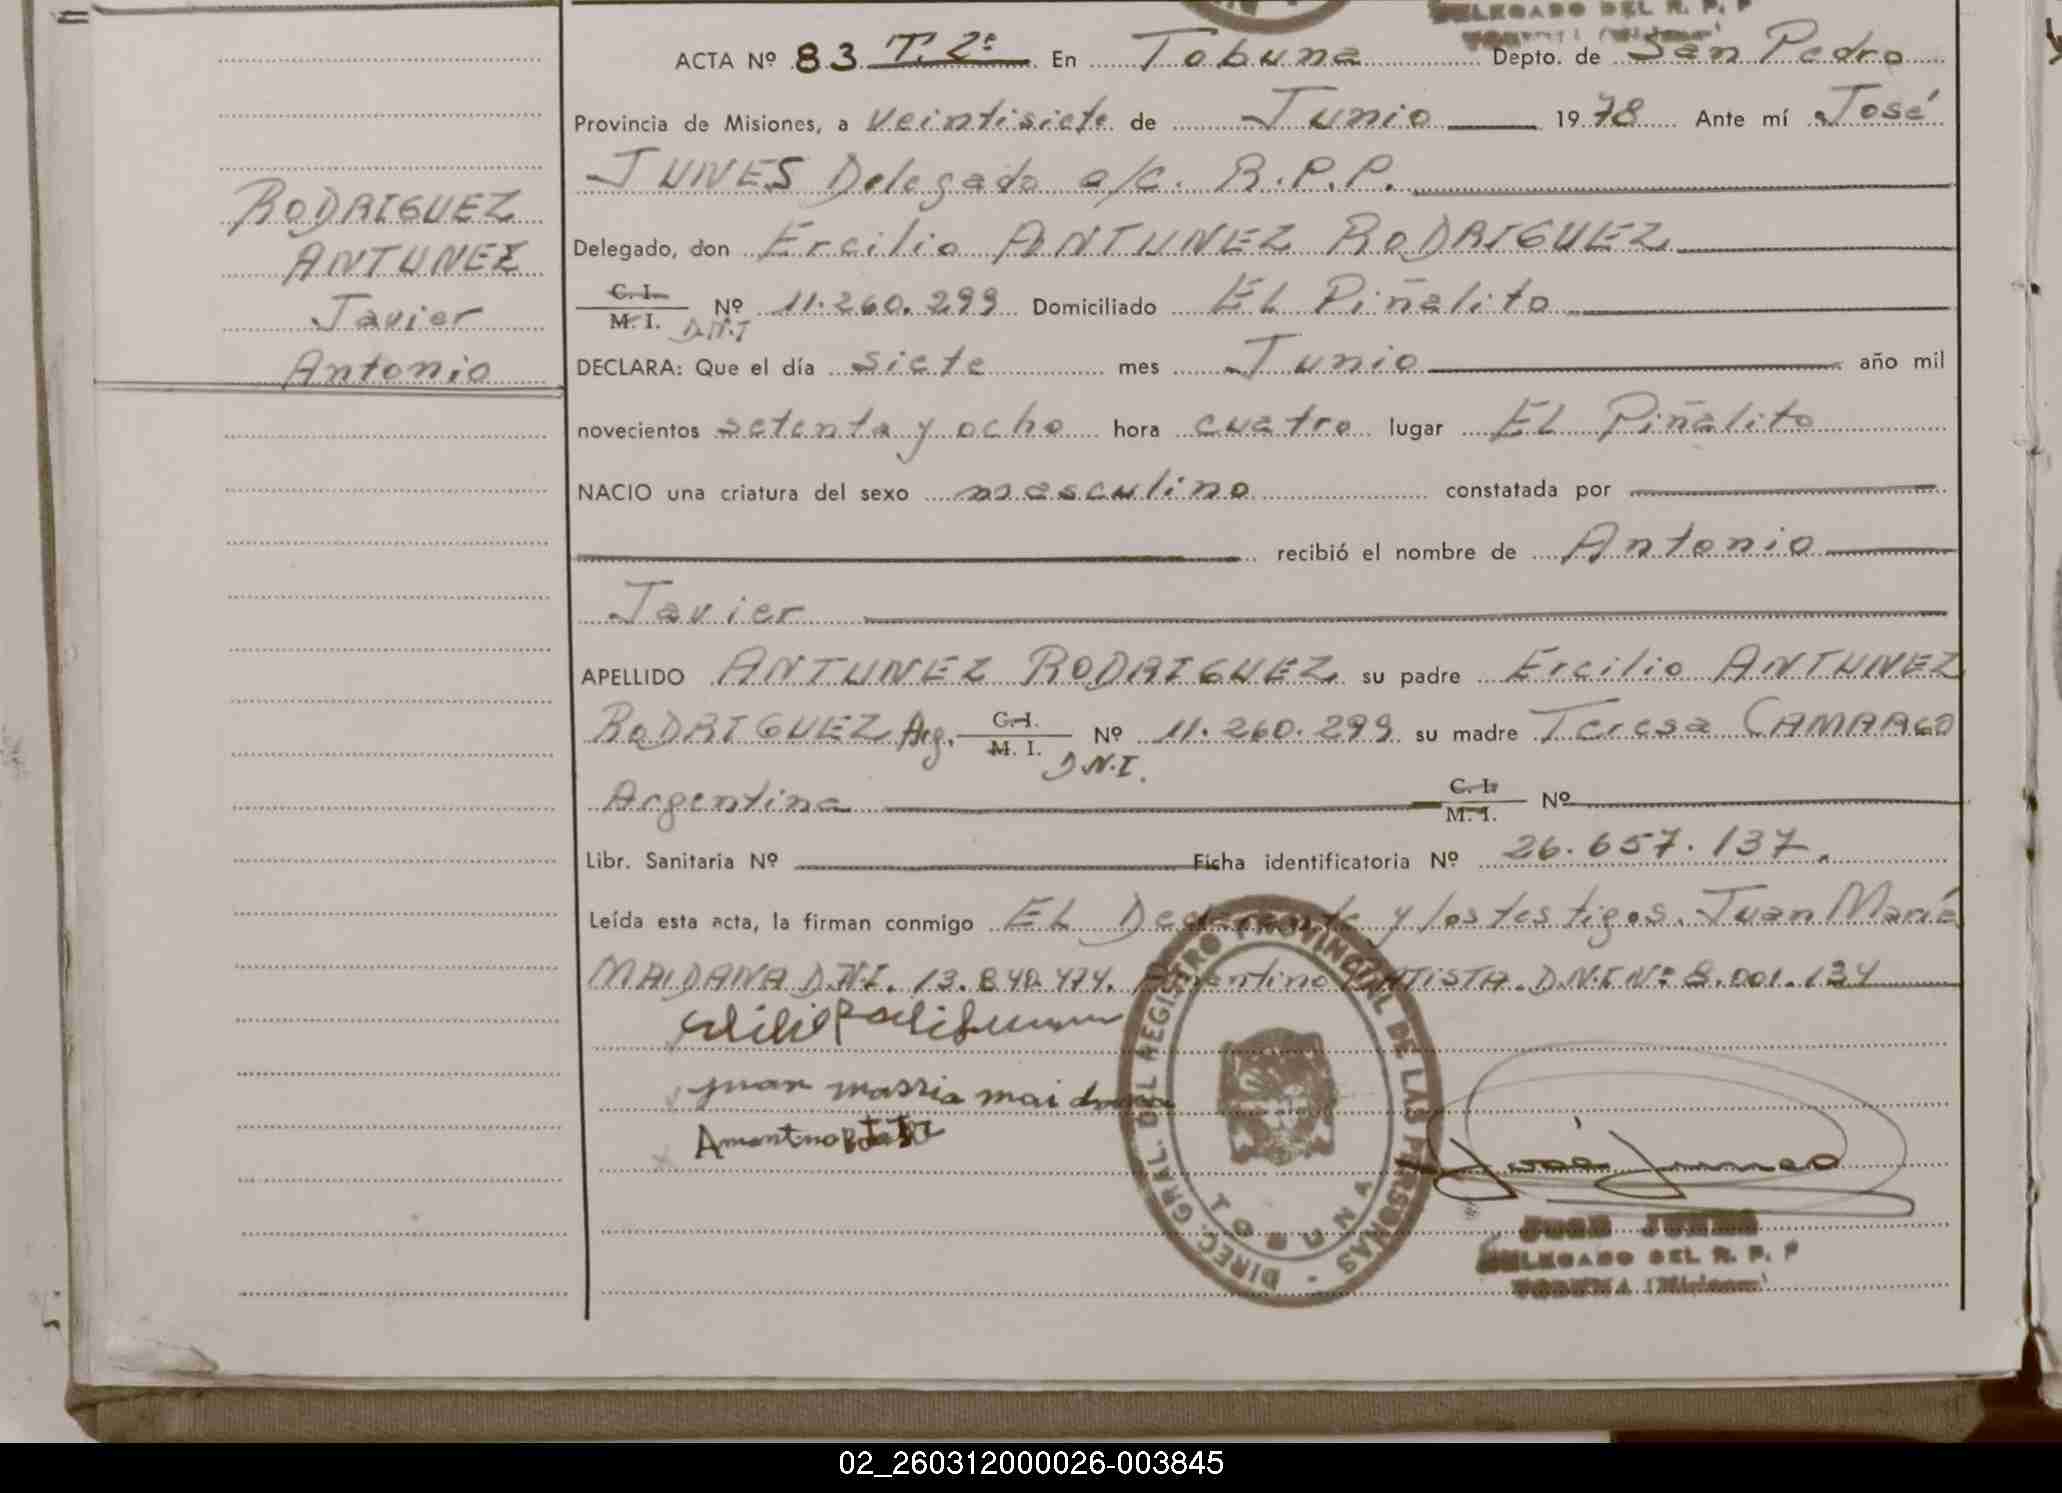 DELEGADO DEL R. P. P
ACTA Nº 83 T. 2º En Tobuna Depto. de San Pedro
Provincia de Misiones, a veintisiete de Junio 1978 Ante mí José
JUNES Delegado a/c. R.P.P.
RODRIGUEZ
ANTUNEZ
Javier
Antonio
Delegado, don Ercilio ANTUNEZ RODRIGUEZ
C. I.
M. I. Nº 11.260.299 Domiciliado EL Piñalito
D.N.I
DECLARA: Que el día siete mes Junio año mil
novecientos setenta y ocho hora cuatro lugar EL Piñalito
NACIO una criatura del sexo masculino constatada por
recibió el nombre de Antonio
Javier
APELLIDO ANTUNEZ RODRIGUEZ su padre Ercilio ANTUNEZ
RODRIGUEZ Arg. C.I. M. I. Nº 11.260.299 su madre Teresa CAMARGO
D.N.I.
Argentina C. I. M. I. Nº
Libr. Sanitaria Nº Ficha identificatoria Nº 26.657.137.
Leída esta acta, la firman conmigo EL Declarante y los testigos. Juan María
MAIDANA D.N.I. 13.840.474. D.N.I Nº 8.001.134
juan massia maidana
DIREC. GRAL. DEL REGISTRO PROVINCIAL DE LAS PERSONAS
TOBUNA
José Junes
JOSE JUNES
DELEGADO DEL R. P. P
TOBUNA (Misiones)
02_260312000026-003845